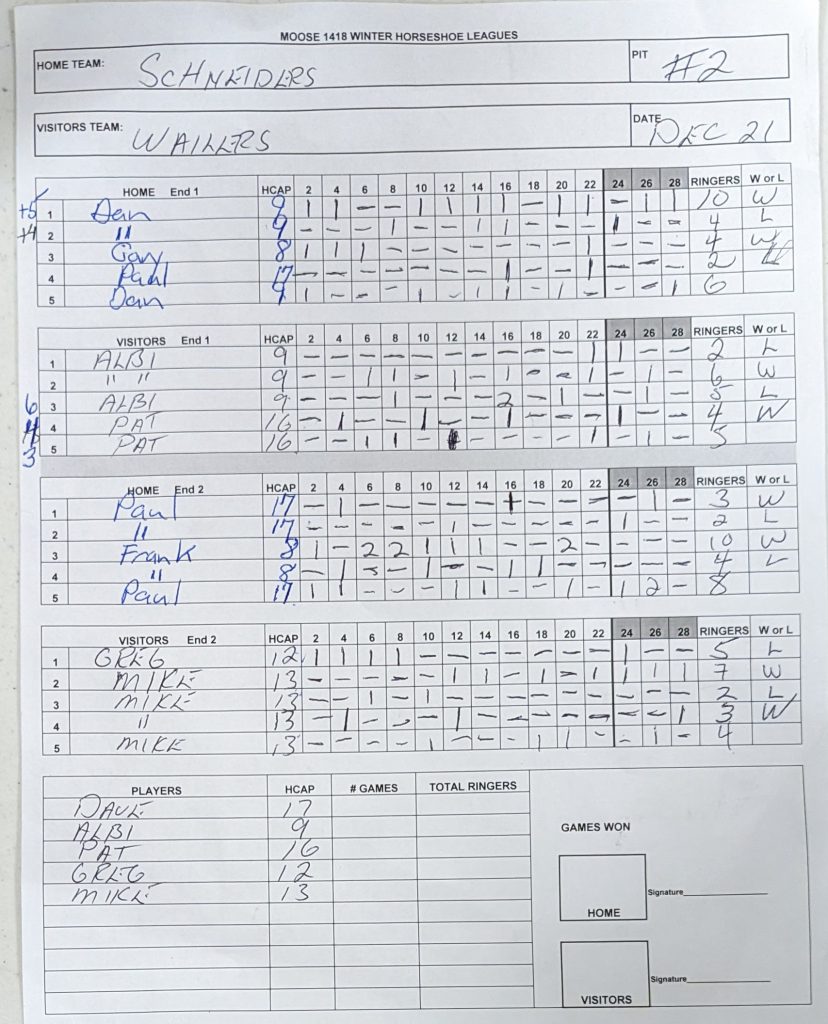 MOOSE 1418 WINTER HORSESHOE LEAGUES
HOME TEAM: SCHNEIDERS PIT #2
VISITORS TEAM: WAILERS DATE DEC 21
HOME End 1 HCAP 2 4 6 8 10 12 14 16 18 20 22 24 26 28 RINGERS W or L
+5 1 Dan 9 | | - - | | | | - | | - | | 10 W
+4 2 " 9 - - - | - - | | - - - | - - 4 L
3 Gary 8 | | | - - - - - - - | - - - 4 W
4 Paul 17 - - - - - - - | - - | - - - 2
5 Dan 9 | - - | | - | | - | - - - | 6
VISITORS End 1 HCAP 2 4 6 8 10 12 14 16 18 20 22 24 26 28 RINGERS W or L
1 ALBI 9 - - - - - - - - - - | | - - 2 L
2 " " 9 - - | | - | - | - - | - | - 6 W
6 3 ALBI 9 - - - | - - - 2 - | - - | - 5 L
4 4 PAT 16 - | - - | - - | - - - | - - 4 W
3 5 PAT 16 - - | | - | - - - - | - | - 5
HOME End 2 HCAP 2 4 6 8 10 12 14 16 18 20 22 24 26 28 RINGERS W or L
1 Paul 17 - | - - - - - | - - - - | - 3 W
2 " 17 - - - - - | - - - - - | - - 2 L
3 Frank 8 | - 2 2 | | | - - 2 - - - - 10 W
4 " 8 - | - - | - - | | - - - - - 4 L
5 Paul 17 | | - - - | | - - | - | 2 - 8
VISITORS End 2 HCAP 2 4 6 8 10 12 14 16 18 20 22 24 26 28 RINGERS W or L
1 GREG 12 | | | | - - - - - - - | - - 5 L
2 MIKE 13 - - - - - | | - | - | | | | 7 W
3 MIKE 13 - - | - | - - - - - - - - - 2 L
4 " 13 - | - - - | - - - - - - - | 3 W
5 MIKE 13 - - - - | - - - | | - - | - 4
PLAYERS HCAP # GAMES TOTAL RINGERS
DAVE 17
ALBI 9
PAT 16
GREG 12
MIKE 13
GAMES WON
Signature
HOME
Signature
VISITORS